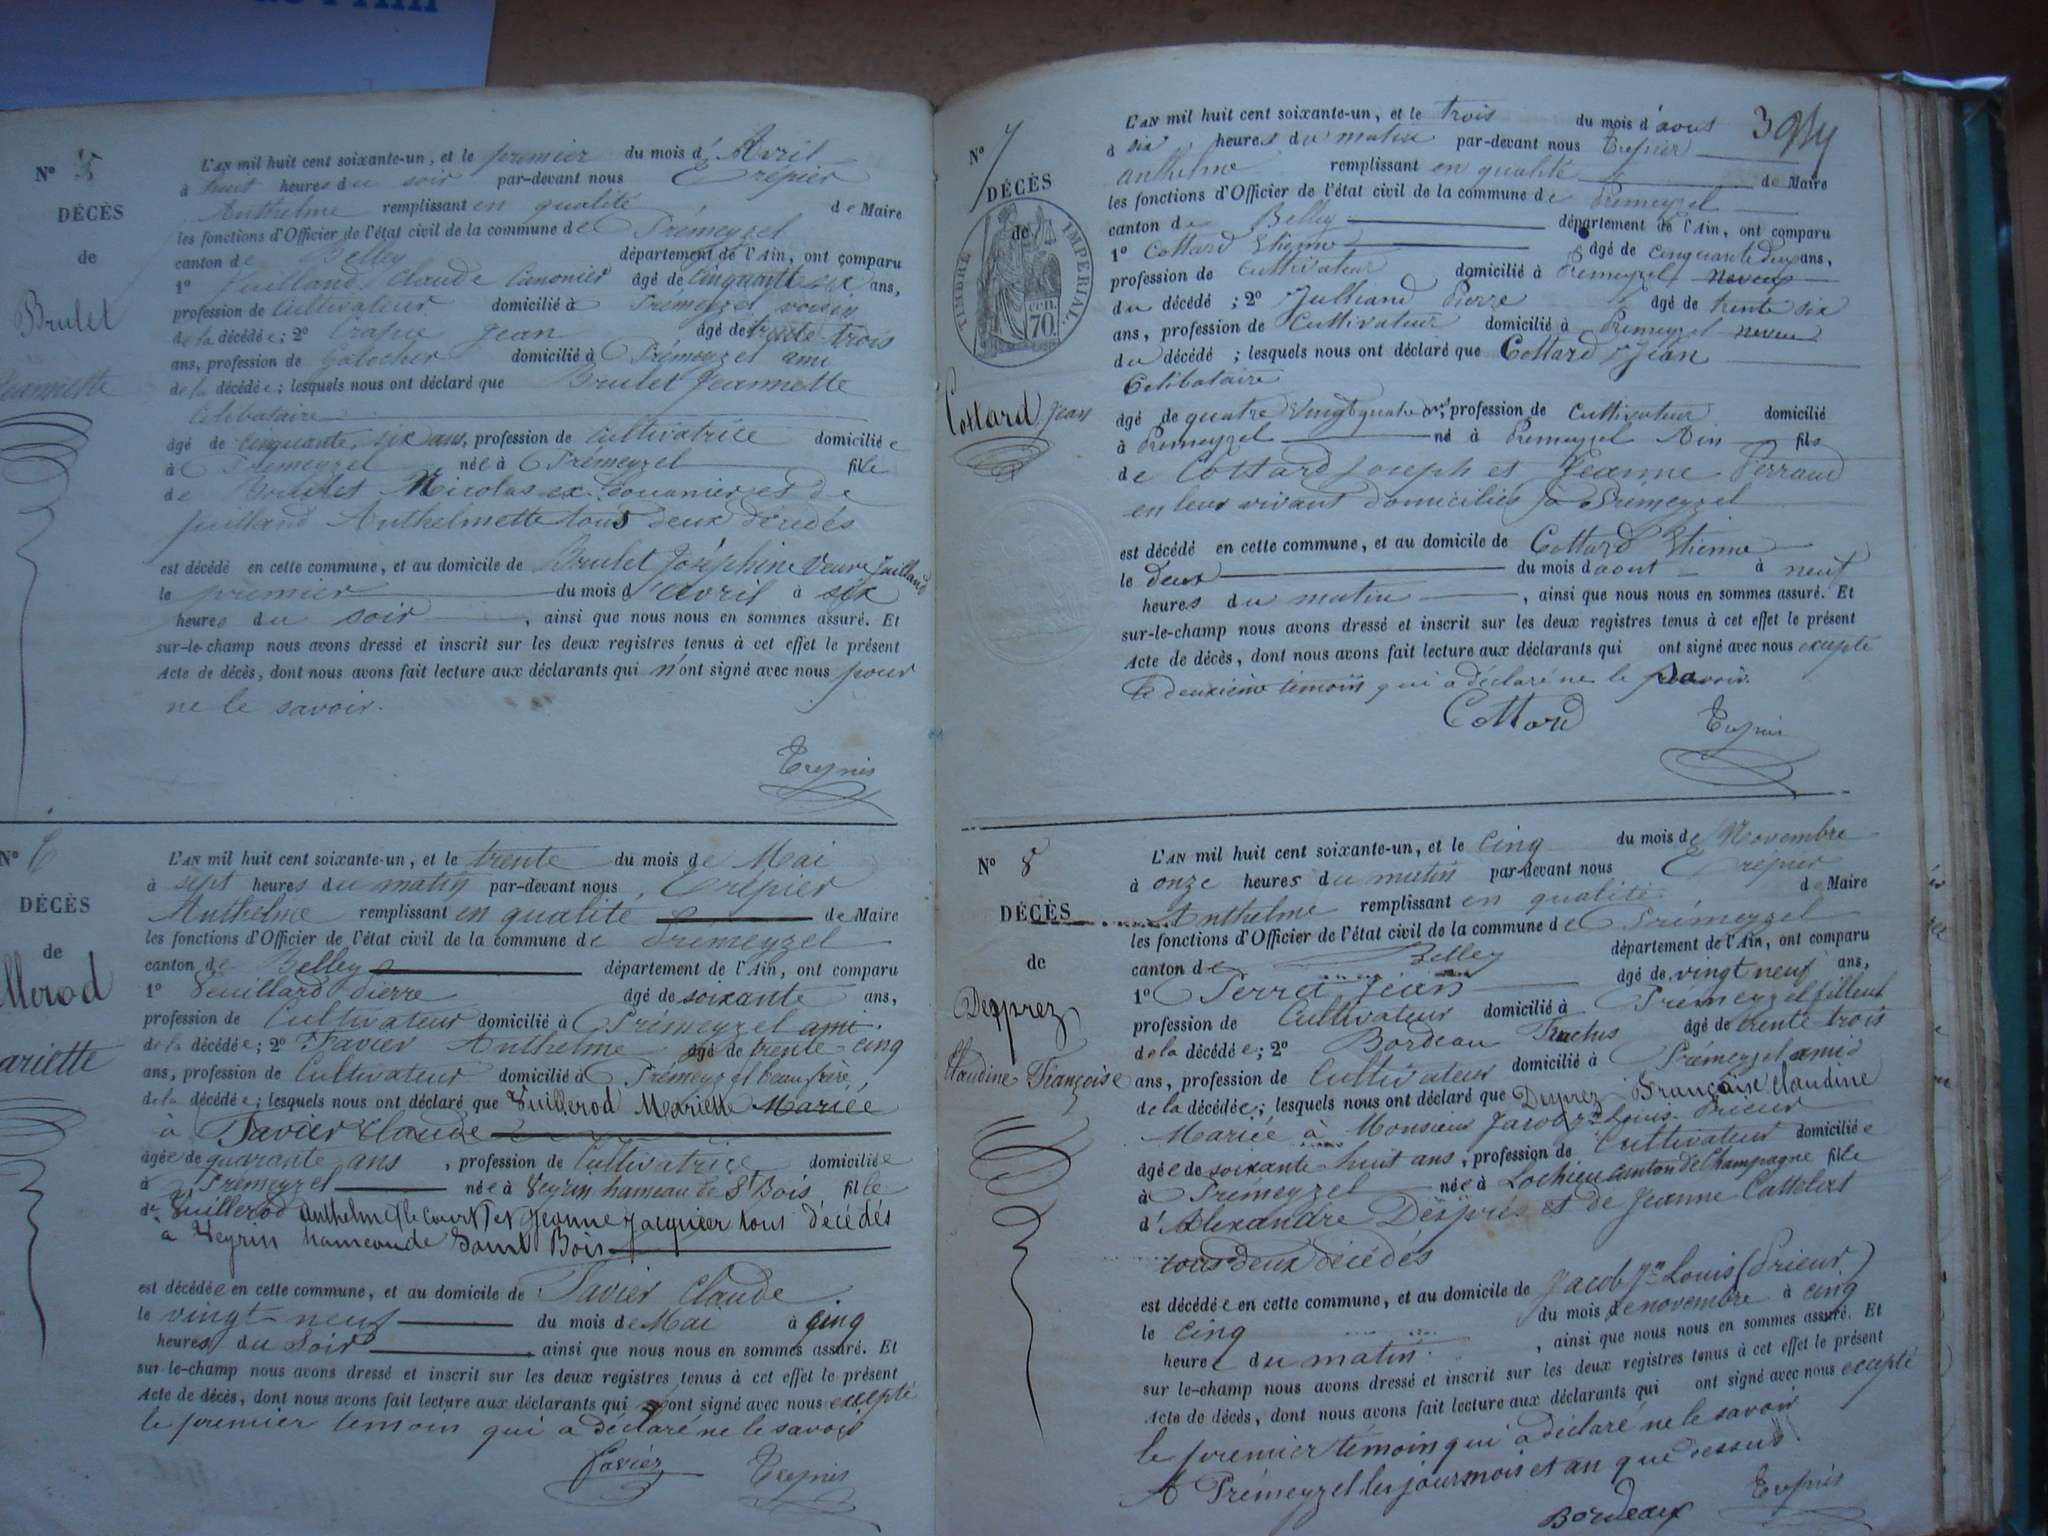 N° 5
DÉCÈS
de
Brulet
Jeannette
L'AN mil huit cent soixante-un, et le premier du mois d'Avril
à huit heures du soir par-devant nous Trépier
Anthelme remplissant en qualité de Maire
les fonctions d'Officier de l'état civil de la commune de Prémeyzel
canton de Belley département de l'Ain, ont comparu
1° Juilland Claude Canonier âgé de cinquante six ans,
profession de Cultivateur domicilié à Prémeyzel voisin
de la décédée; 2° Jean âgé de trente trois
ans, profession de Galocher domicilié à Prémeyzel ami
de la décédée; lesquels nous ont déclaré que Brulet Jeannette
Celibataire
âgé de cinquante six ans, profession de Cultivatrice domiciliée
à Prémeyzel née à Prémeyzel fille
de Brulet Nicolas ex Douanier et de
Juilland Anthelmette tous deux décédés
est décédé en cette commune, et au domicile de Brulet Joséphine Veuve Juilland
le premier du mois d'avril à six
heures du soir, ainsi que nous nous en sommes assuré. Et
sur-le-champ nous avons dressé et inscrit sur les deux registres tenus à cet effet le présent
Acte de décès, dont nous avons fait lecture aux déclarants qui n'ont signé avec nous pour
ne le savoir.
Trépier
N° 6
DÉCÈS
de
llerod
ariette
L'AN mil huit cent soixante-un, et le trente du mois de Mai
à sept heures du matin par-devant nous Trépier
Anthelme remplissant en qualité de Maire
les fonctions d'Officier de l'état civil de la commune de Prémeyzel
canton de Belley département de l'Ain, ont comparu
1° Vuillard Pierre âgé de soixante ans,
profession de Cultivateur domicilié à Prémeyzel ami
de la décédée; 2° Tavier Anthelme âgé de trente cinq
ans, profession de Cultivateur domicilié à Prémeyzel beau frère
de la décédée; lesquels nous ont déclaré que Vuillerod Mariette Mariée
à Tavier Claude
âgée de quarante ans, profession de Cultivatrice domiciliée
à Prémeyzel née à Veyrin hameau de St Bois fille
de Vuillerod Anthelme (le court) et Jeanne Jacquier tous décédés
à Veyrin hameau de Saint Bois
est décédée en cette commune, et au domicile de Tavier Claude
le vingt neuf du mois de Mai à cinq
heures du soir ainsi que nous nous en sommes assuré. Et
sur-le-champ nous avons dressé et inscrit sur les deux registres tenus à cet effet le présent
Acte de décès, dont nous avons fait lecture aux déclarants qui ont signé avec nous excepté
le premier temoin qui a déclaré ne le savoir
Tavier Trépier
394
N° 7
DÉCÈS
de
TIMBRE IMPÉRIAL
70
Cottard Jean
L'AN mil huit cent soixante-un, et le trois du mois d'aout
à six heures du matin par-devant nous Trepier
Anthelme remplissant en qualité de Maire
les fonctions d'Officier de l'état civil de la commune de Prémeyzel
canton de Belley département de l'Ain, ont comparu
1° Cottard Etienne âgé de cinquante deux ans,
profession de Cultivateur domicilié à Prémeyzel neveu
du décédé; 2° Julliand Pierre âgé de trente six
ans, profession de Cultivateur domicilié à Prémeyzel neveu
du décédé; lesquels nous ont déclaré que Cottard Jean
Célibataire
âgé de quatre vingt quatre ans, profession de Cultivateur domicilié
à Prémeyzel né à Prémeyzel Ain fils
de Cottard Joseph et Jeanne Perraud
en leur vivant domiciliés à Prémeyzel
est décédé en cette commune, et au domicile de Cottard Etienne
le deux du mois d'aout à neuf
heures du matin, ainsi que nous nous en sommes assuré. Et
sur-le-champ nous avons dressé et inscrit sur les deux registres tenus à cet effet le présent
Acte de décès, dont nous avons fait lecture aux déclarants qui ont signé avec nous excepte
le deuxième témoin qui a déclaré ne le savoir.
Cottard Trépier
N° 8
DÉCÈS
de
Desprez
Claudine Françoise
L'AN mil huit cent soixante-un, et le cinq du mois de Novembre
à onze heures du matin par-devant nous Trepier
Anthelme remplissant en qualité de Maire
les fonctions d'Officier de l'état civil de la commune de Prémeyzel
canton de Belley département de l'Ain, ont comparu
1° Perret Jean âgé de vingt neuf ans,
profession de Cultivateur domicilié à Prémeyzel filleul
de la décédée; 2° Bordeau âgé de trente trois
ans, profession de Cultivateur domicilié à Prémeyzel ami
de la décédée; lesquels nous ont déclaré que Desprez Françoise Claudine
Mariée à Monsieur Jacob Jn Louis Prieur
âgée de soixante huit ans, profession de Cultivateur domiciliée
à Prémeyzel née à Lochieu canton de Champagne fille
d'Alexandre Després et de Jeanne
tous deux décédés
est décédée en cette commune, et au domicile de Jacob Jn Louis (Prieur)
le cinq du mois de novembre à cinq
heure du matin, ainsi que nous nous en sommes assuré. Et
sur-le-champ nous avons dressé et inscrit sur les deux registres tenus à cet effet le présent
Acte de décès, dont nous avons fait lecture aux déclarants qui ont signé avec nous excepté
le premier témoin qui a déclaré ne le savoir
A Prémeyzel les jour mois et an que dessus.
Bordeaux Trépier